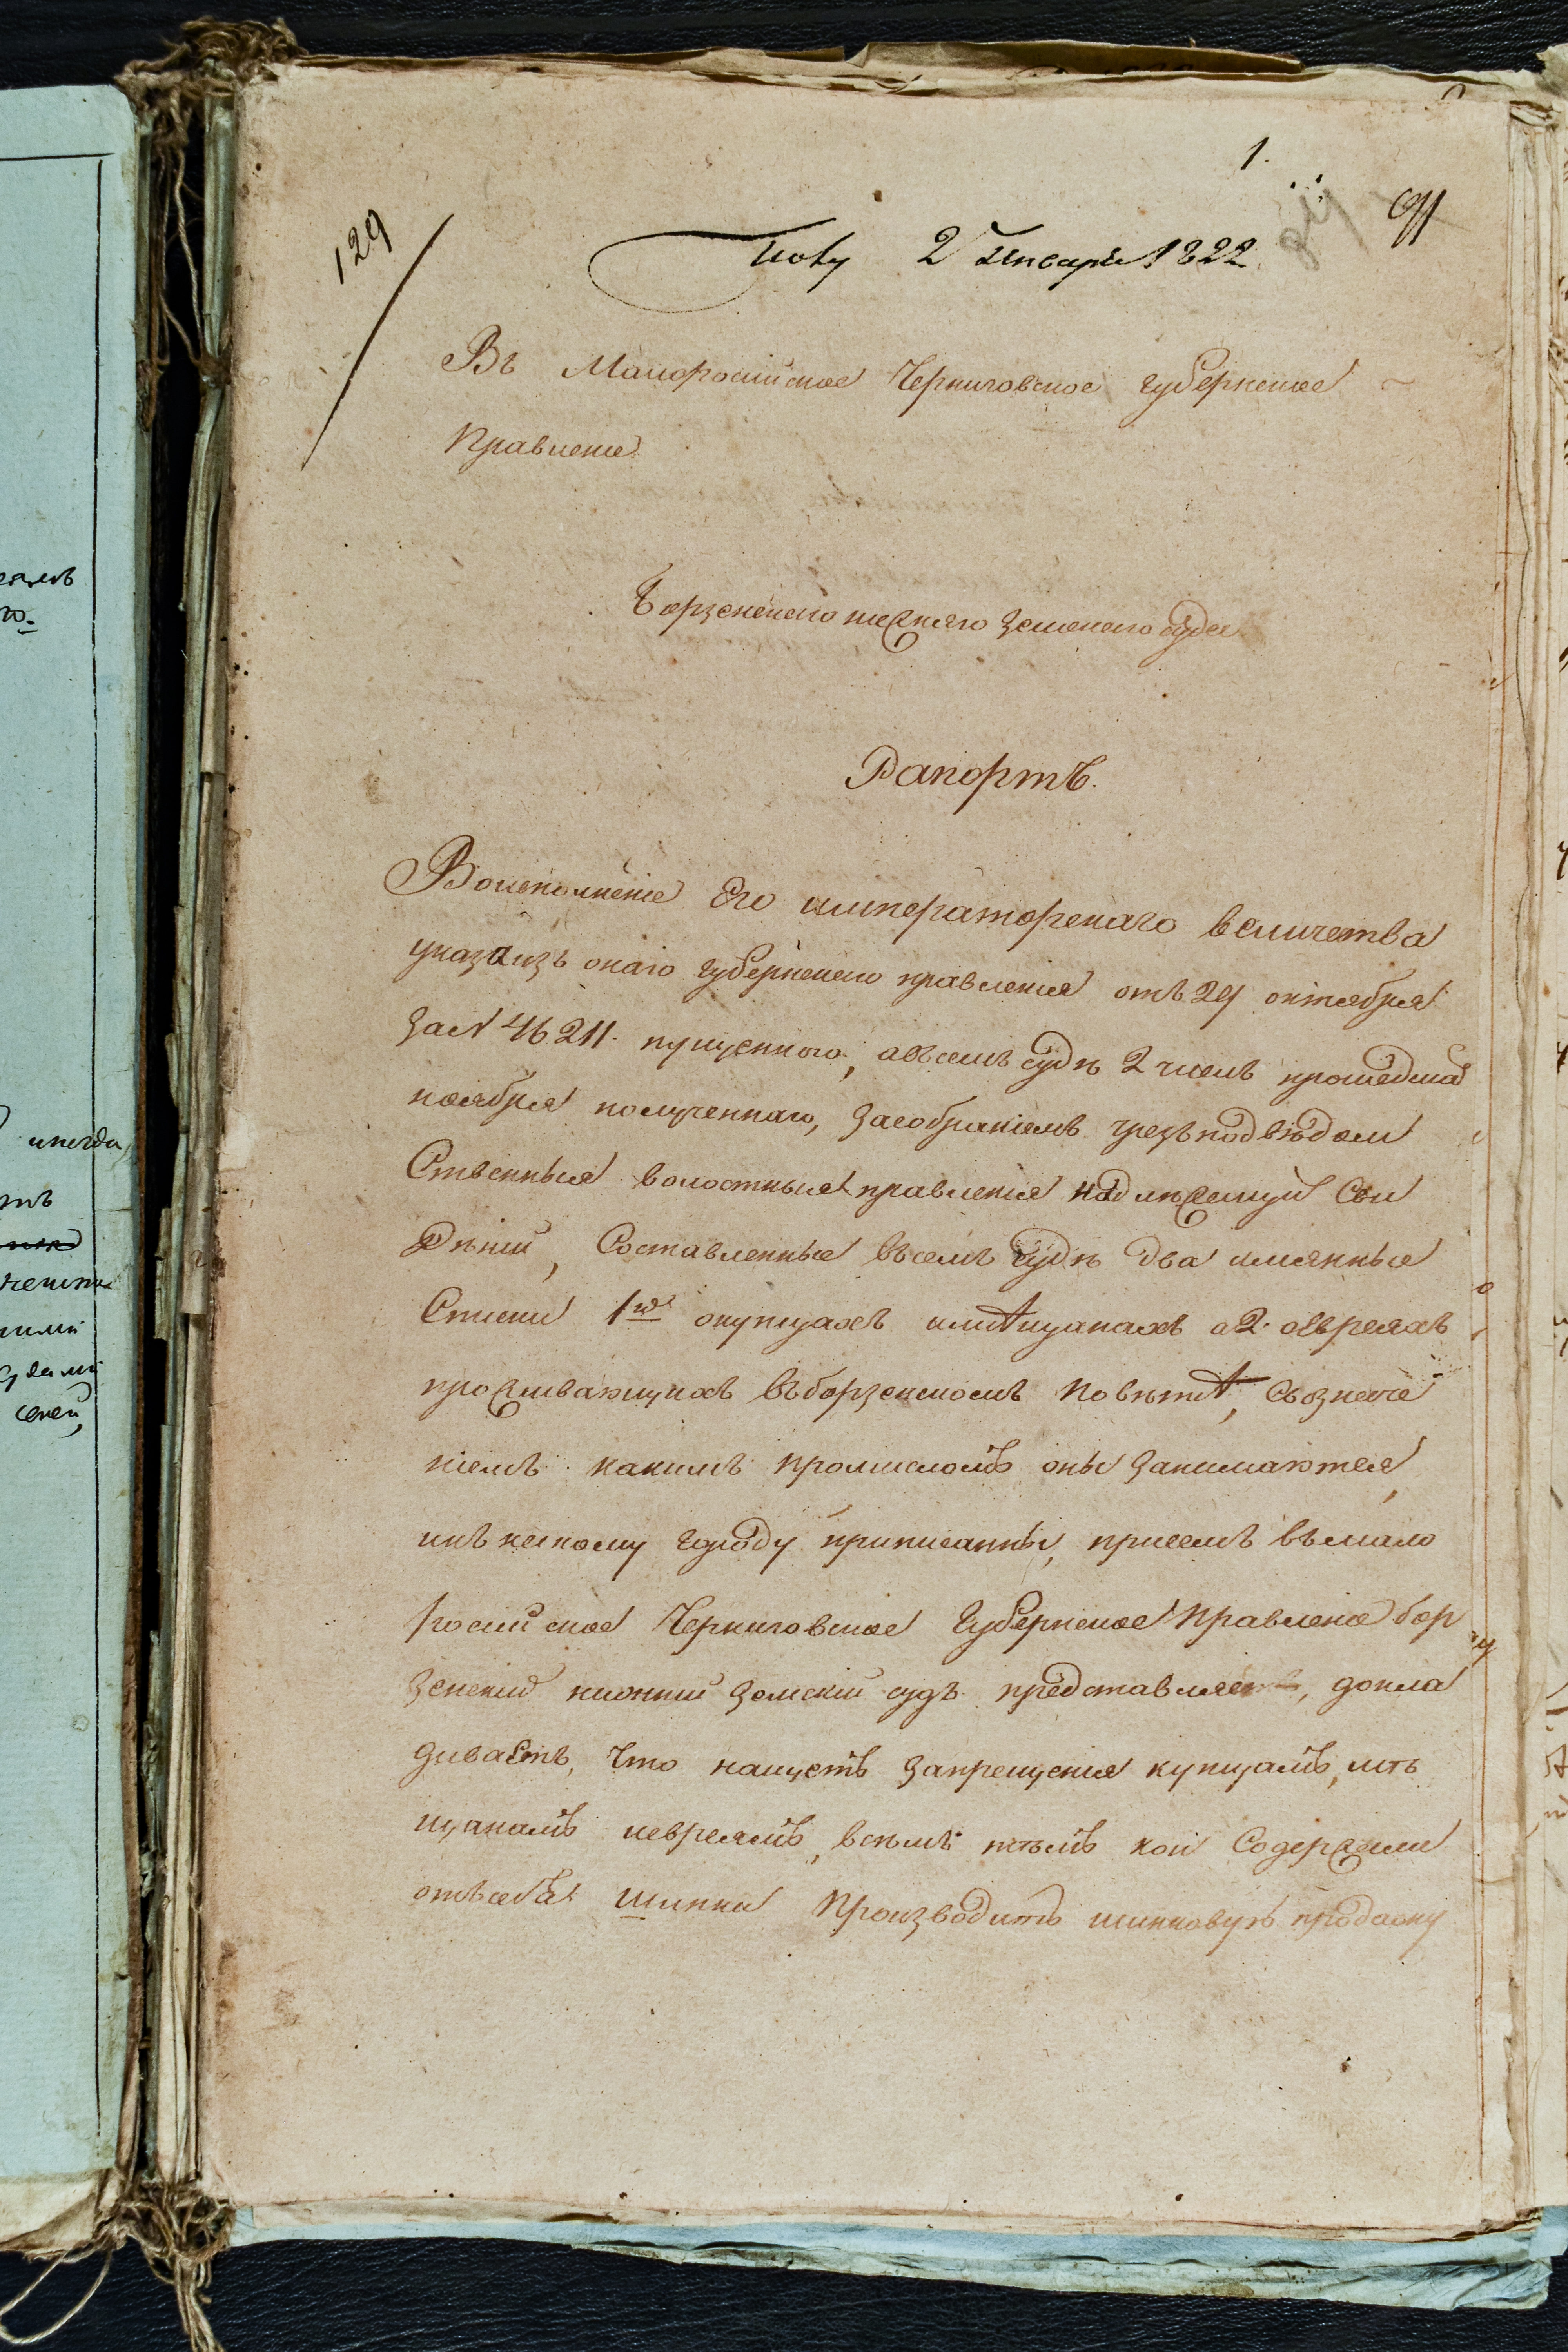 1.
129
91
2 Генваря 1822
Въ Малоросийское Черниговское губернское
Правление
Борзенского нижнего земского суда
Рапортъ.
Воисполнение Его императорскаго величества
указа изъ онаго губернского правления отъ 29 октября
за N 46211. пущенного, авсемъ суде 2 числъ прошедша
ноября полученнаго, засобраниемъ чрезъ подведом
Ственныя волостныя правления надлежащий Све
Дений, Составленные въсемъ суде два имянные
Списки 1й окупцахъ имещанахъ а 2. оевреяхъ
проживающихъ въборзенскомъ поветѣ, Съозначе
ниемъ какимъ промисломъ оны занимаются,
икъ какому городу приписанны, присемъ въмало
росийское Черниговское Губернское Правление бор
зенский нижний земский судъ представляетъ, докла
диваетъ, Что насчетъ запрещения купцамъ, мѣ
щанамъ иевреямъ, всемъ темъ кои Содержали
отъсебя шинки Производить шинковую продажу